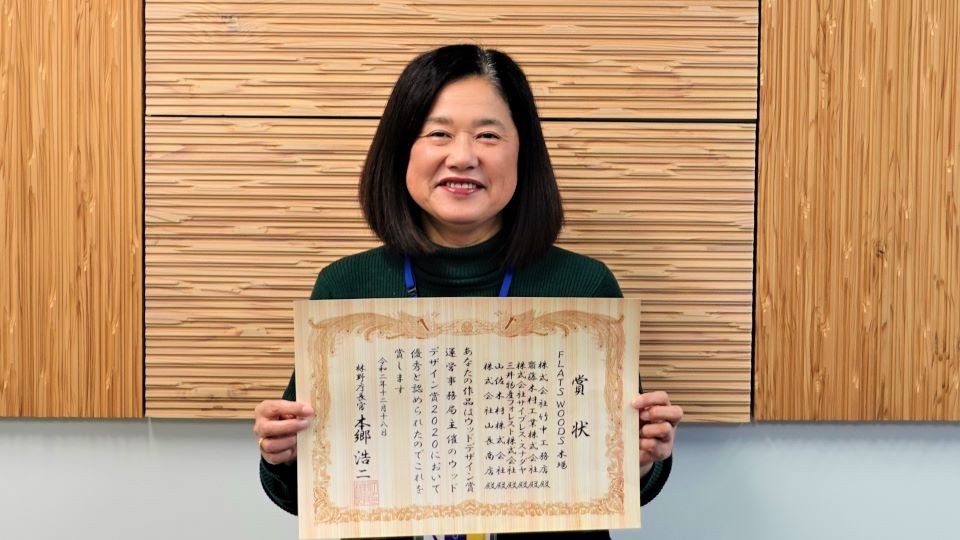 賞状
FLATS WOODS 木場
株式会社竹中工務店殿
齋藤木材工業株式会社殿
株式会社サイプレス・スナダヤ殿
三井物産フォレスト株式会社殿
山佐木材株式会社殿
株式会社山長商店殿
あなたの作品はウッドデザイン賞
運営事務局主催のウッド
デザイン賞2020において
優秀と認められたのでこれを
賞します
令和二年十二月十八日
林野庁長官 本郷 浩二